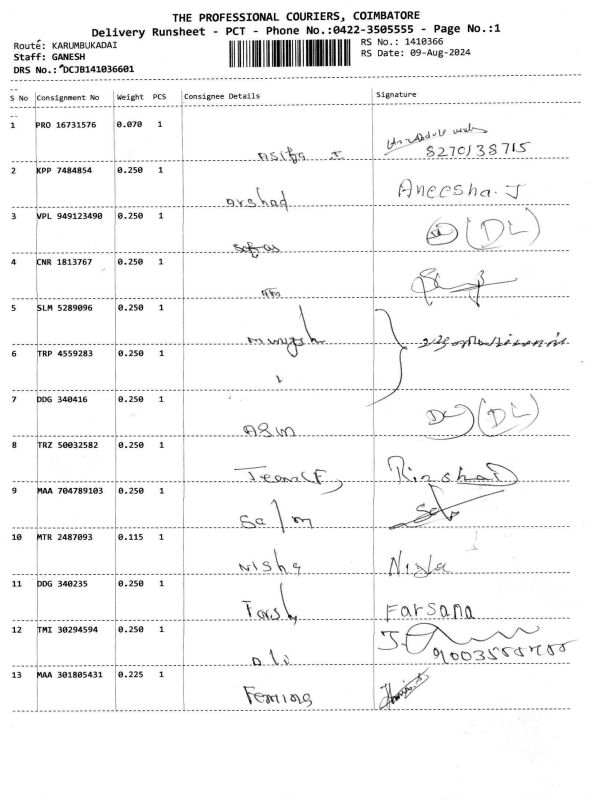 THE PROFESSIONAL COURIERS, COIMBATORE
Delivery Runsheet - PCT - Phone No.:0422-3505555 - Page No.:1
Route: KARUMBUKADAI RS No.: 1410366
Staff: GANESH RS Date: 09-Aug-2024
DRS No.: DCJB141036601
--
S No Consignment No Weight PCS Consignee Details Signature
--
1 PRO 16731576 0.070 1
8270138715
2 KPP 7484854 0.250 1
Arshad Aneesha. J
3 VPL 949123490 0.250 1
(DL)
4 CNR 1813767 0.250 1
5 SLM 5289096 0.250 1
6 TRP 4559283 0.250 1
7 DDG 340416 0.250 1
(DL)
8 TRZ 50032582 0.250 1
Rizshad
9 MAA 704789103 0.250 1
Salm
10 MTR 2487093 0.115 1
Nisha Nisha
11 DDG 340235 0.250 1
Farsana
12 TMI 30294594 0.250 1
13 MAA 301805431 0.225 1